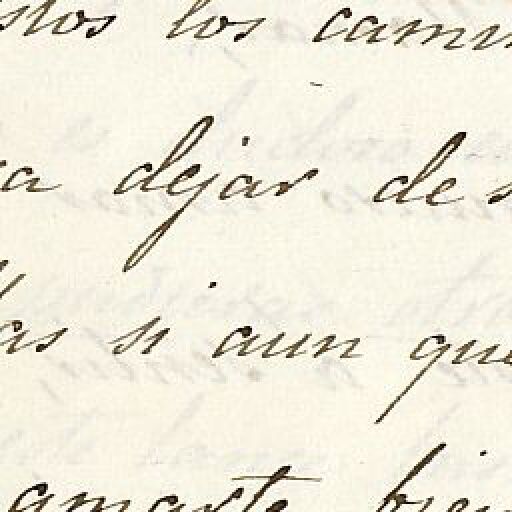 stos los cam
a dejar de
as si aun que
amarte bien